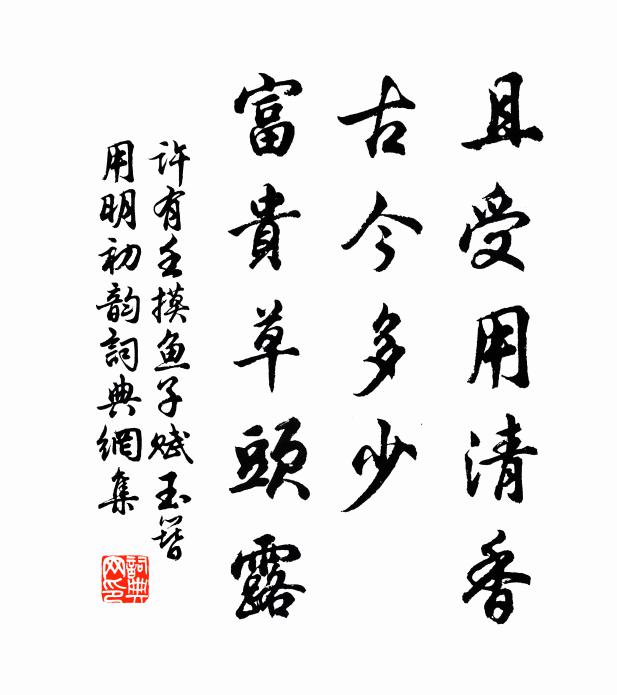 且受用清香
古今多少
富貴草頭露
許有壬摸魚子賦玉簪
用明初韵詞典網集
詞典
网印